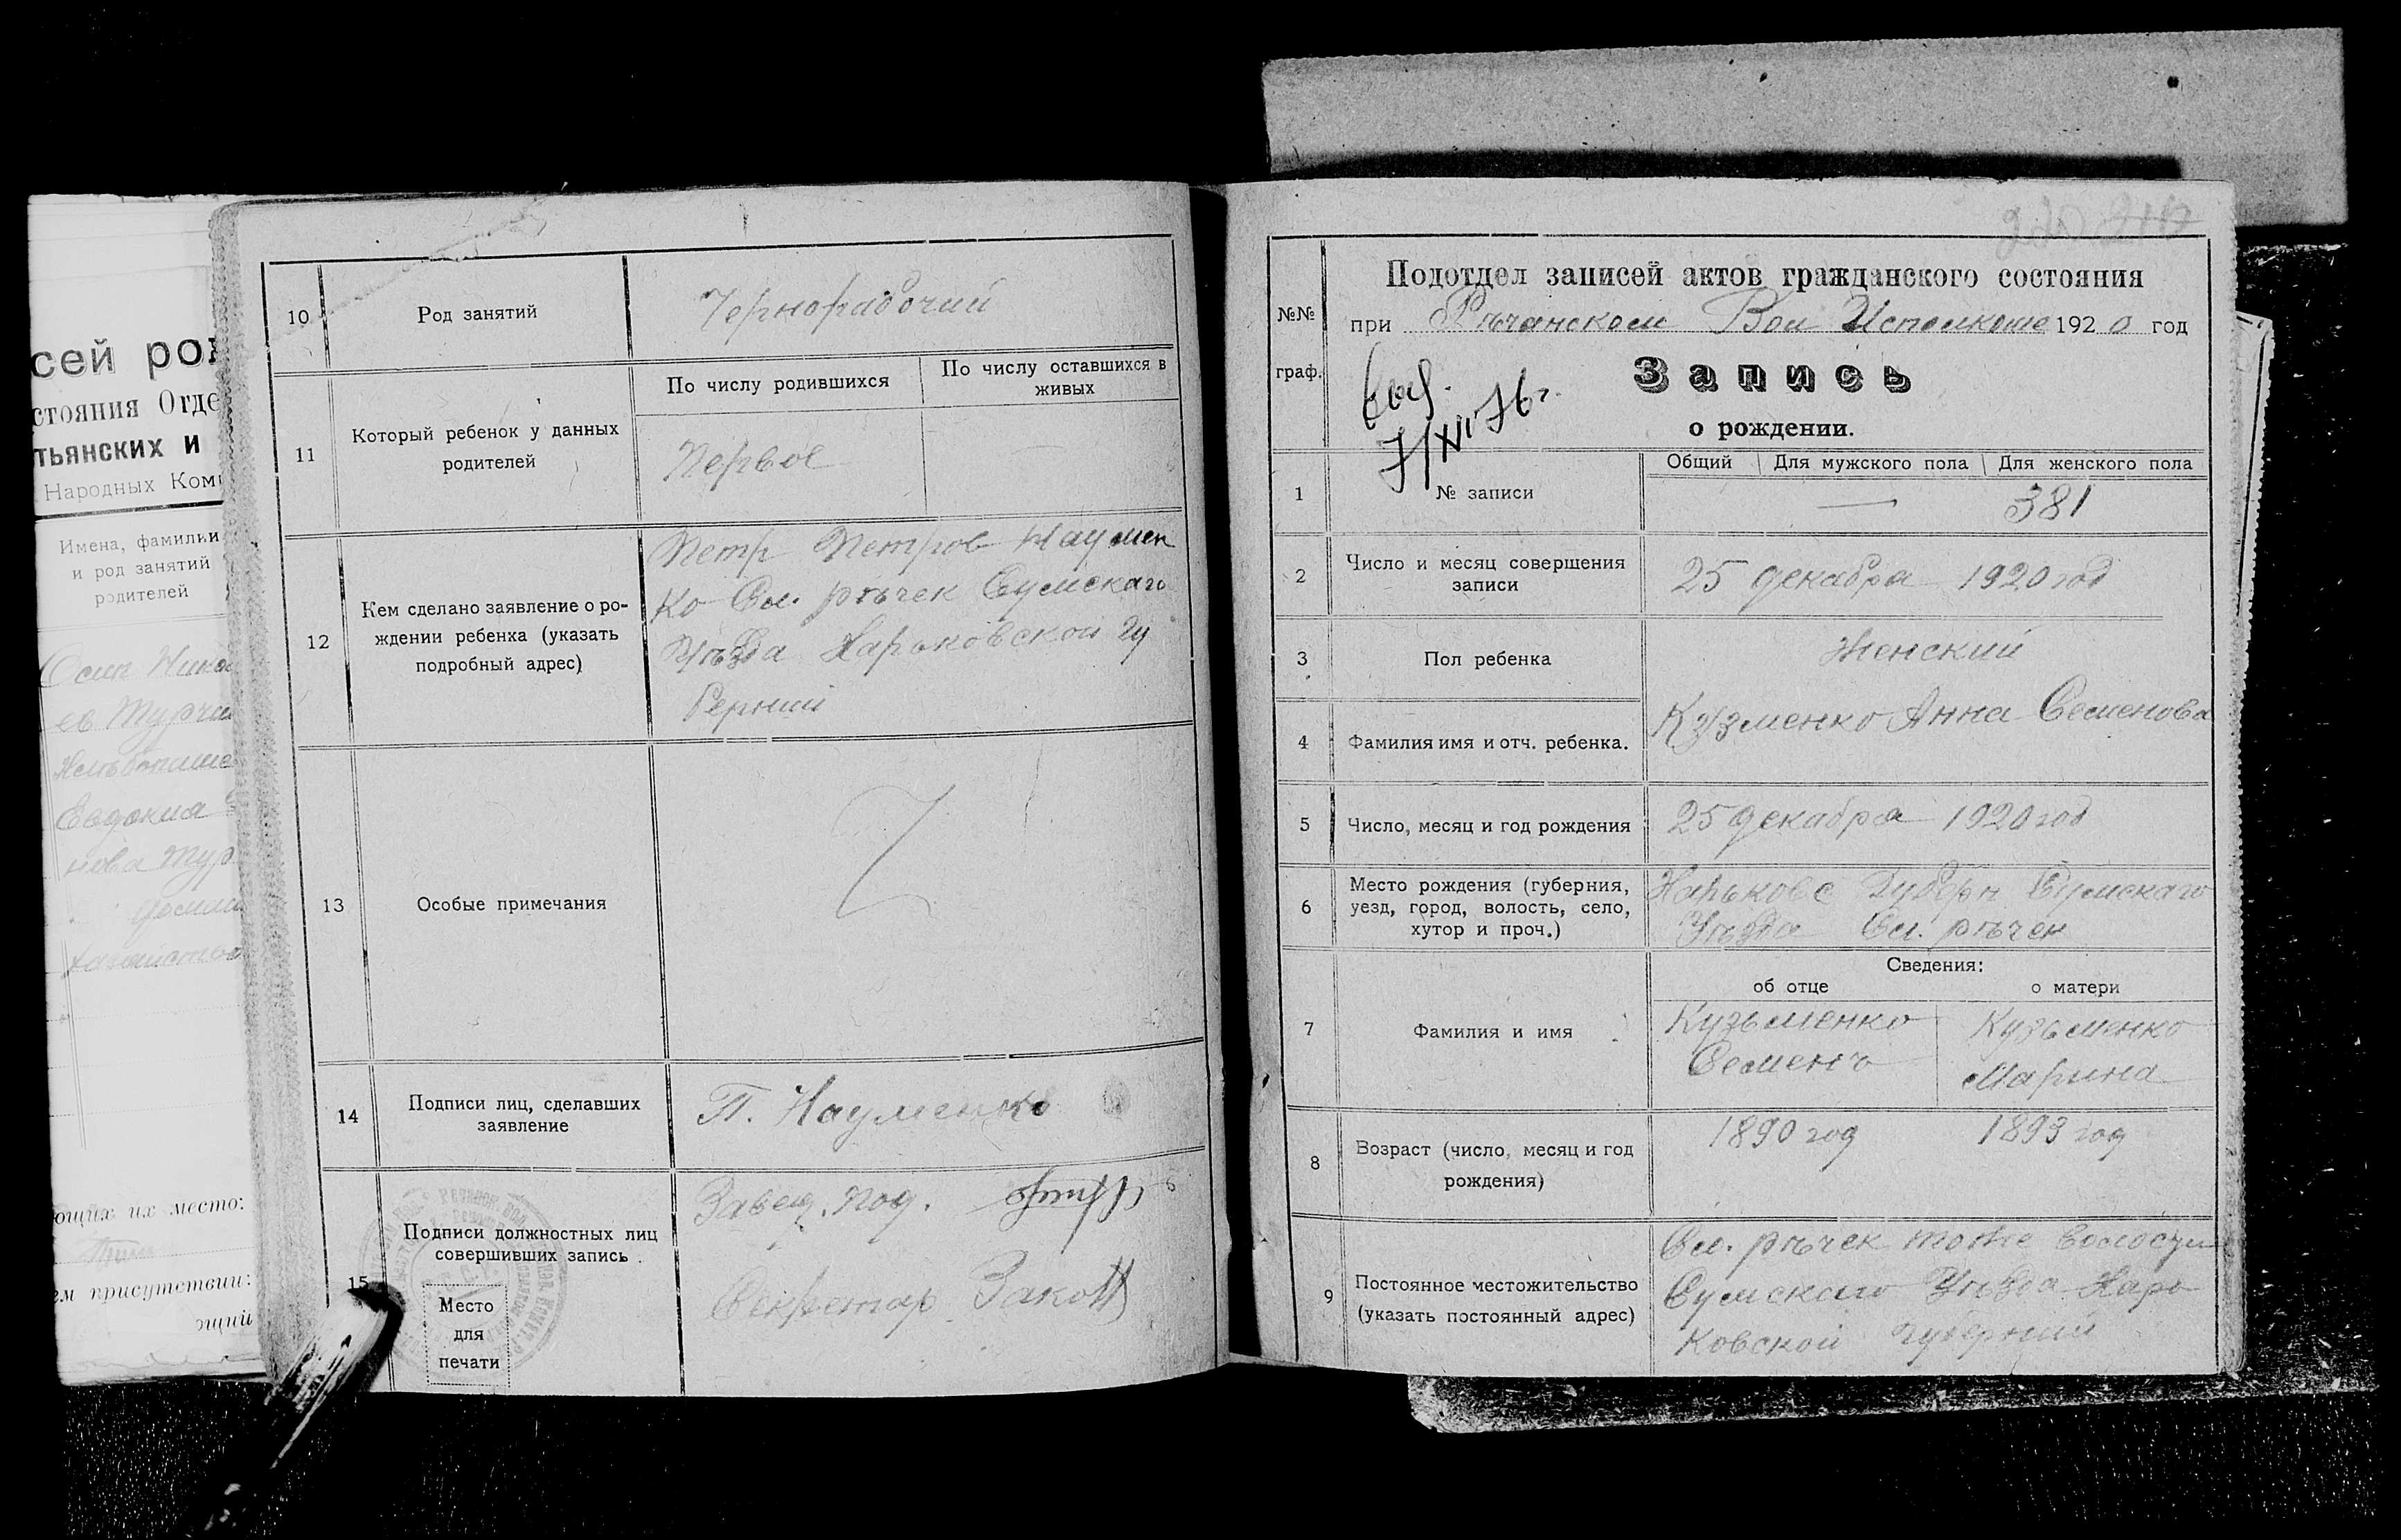 сей рож
стояния Отде
тьянских и
Народных Ком
Имена, фамилии
и род занятий
родителей
Осип Никола
ев Турчи
Евдокия
нова Тур
ющих их место:
ем присутствии:
10
Род занятий
Чернорабочий
11
Который ребенок у данных
родителей
По числу родившихся
По числу оставшихся в
живых
Первое
12
Кем сделано заявление о ро-
ждении ребенка (указать
подробный адрес)
Петр Петров Наумен
ко Сл. рѣчек Сумскаго
Уѣзда Харьковской гу
берний
13
Особые примечания
14
Подписи лиц, сделавших
заявление
П. Науменко
15
Подписи должностных лиц
совершивших запись
Место
для
печати
Завед. под.
Секретар
№№
граф.
Подотдел записей актов гражданского состояния
при Рѣчанском Вол Исполкоме 1920 год
Запись
о рождении.
выд.
7/XII 76 г.
1
№ записи
Общий
Для мужского пола
Для женского пола
—
381
2
Число и месяц совершения
записи
25 декабря 1920 год
3
Пол ребенка
Женский
4
Фамилия имя и отч. ребенка.
Кузменко Анна Семенова
5
Число, месяц и год рождения
25 декабря 1920 год
6
Место рождения (губерния,
уезд, город, волость, село,
хутор и проч.)
Харьковс Губерн Сумскаго
Уѣзда Сл. рѣчек
Сведения:
об отце
о матери
7
Фамилия и имя
Кузьменко
Семенъ
Кузьменко
Марина
8
Возраст (число, месяц и год
рождения)
1890 год
1893 год
9
Постоянное местожительство
(указать постоянный адрес)
Сл. рѣчек тоже волости
Сумскаго Уѣзда Харь
ковской губерний